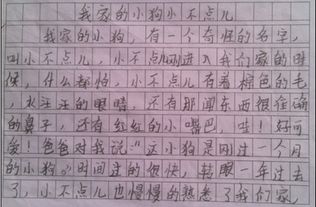 我家的小狗小不点儿
我家的小狗，有一个奇怪的名字，
叫小不点儿，小不点儿刚进入我们家的时
候，什么都怕，小不点儿有着棕色的毛
，水汪汪的眼睛，还有那闻东西很准确
的鼻子，还有红红的小嘴巴，哇！好可
爱！爸爸对我说：“这小狗是刚过一个月
的小狗。”时间过的很快，转眼一年过去
了，小不点儿也慢慢的熟悉了我们家，